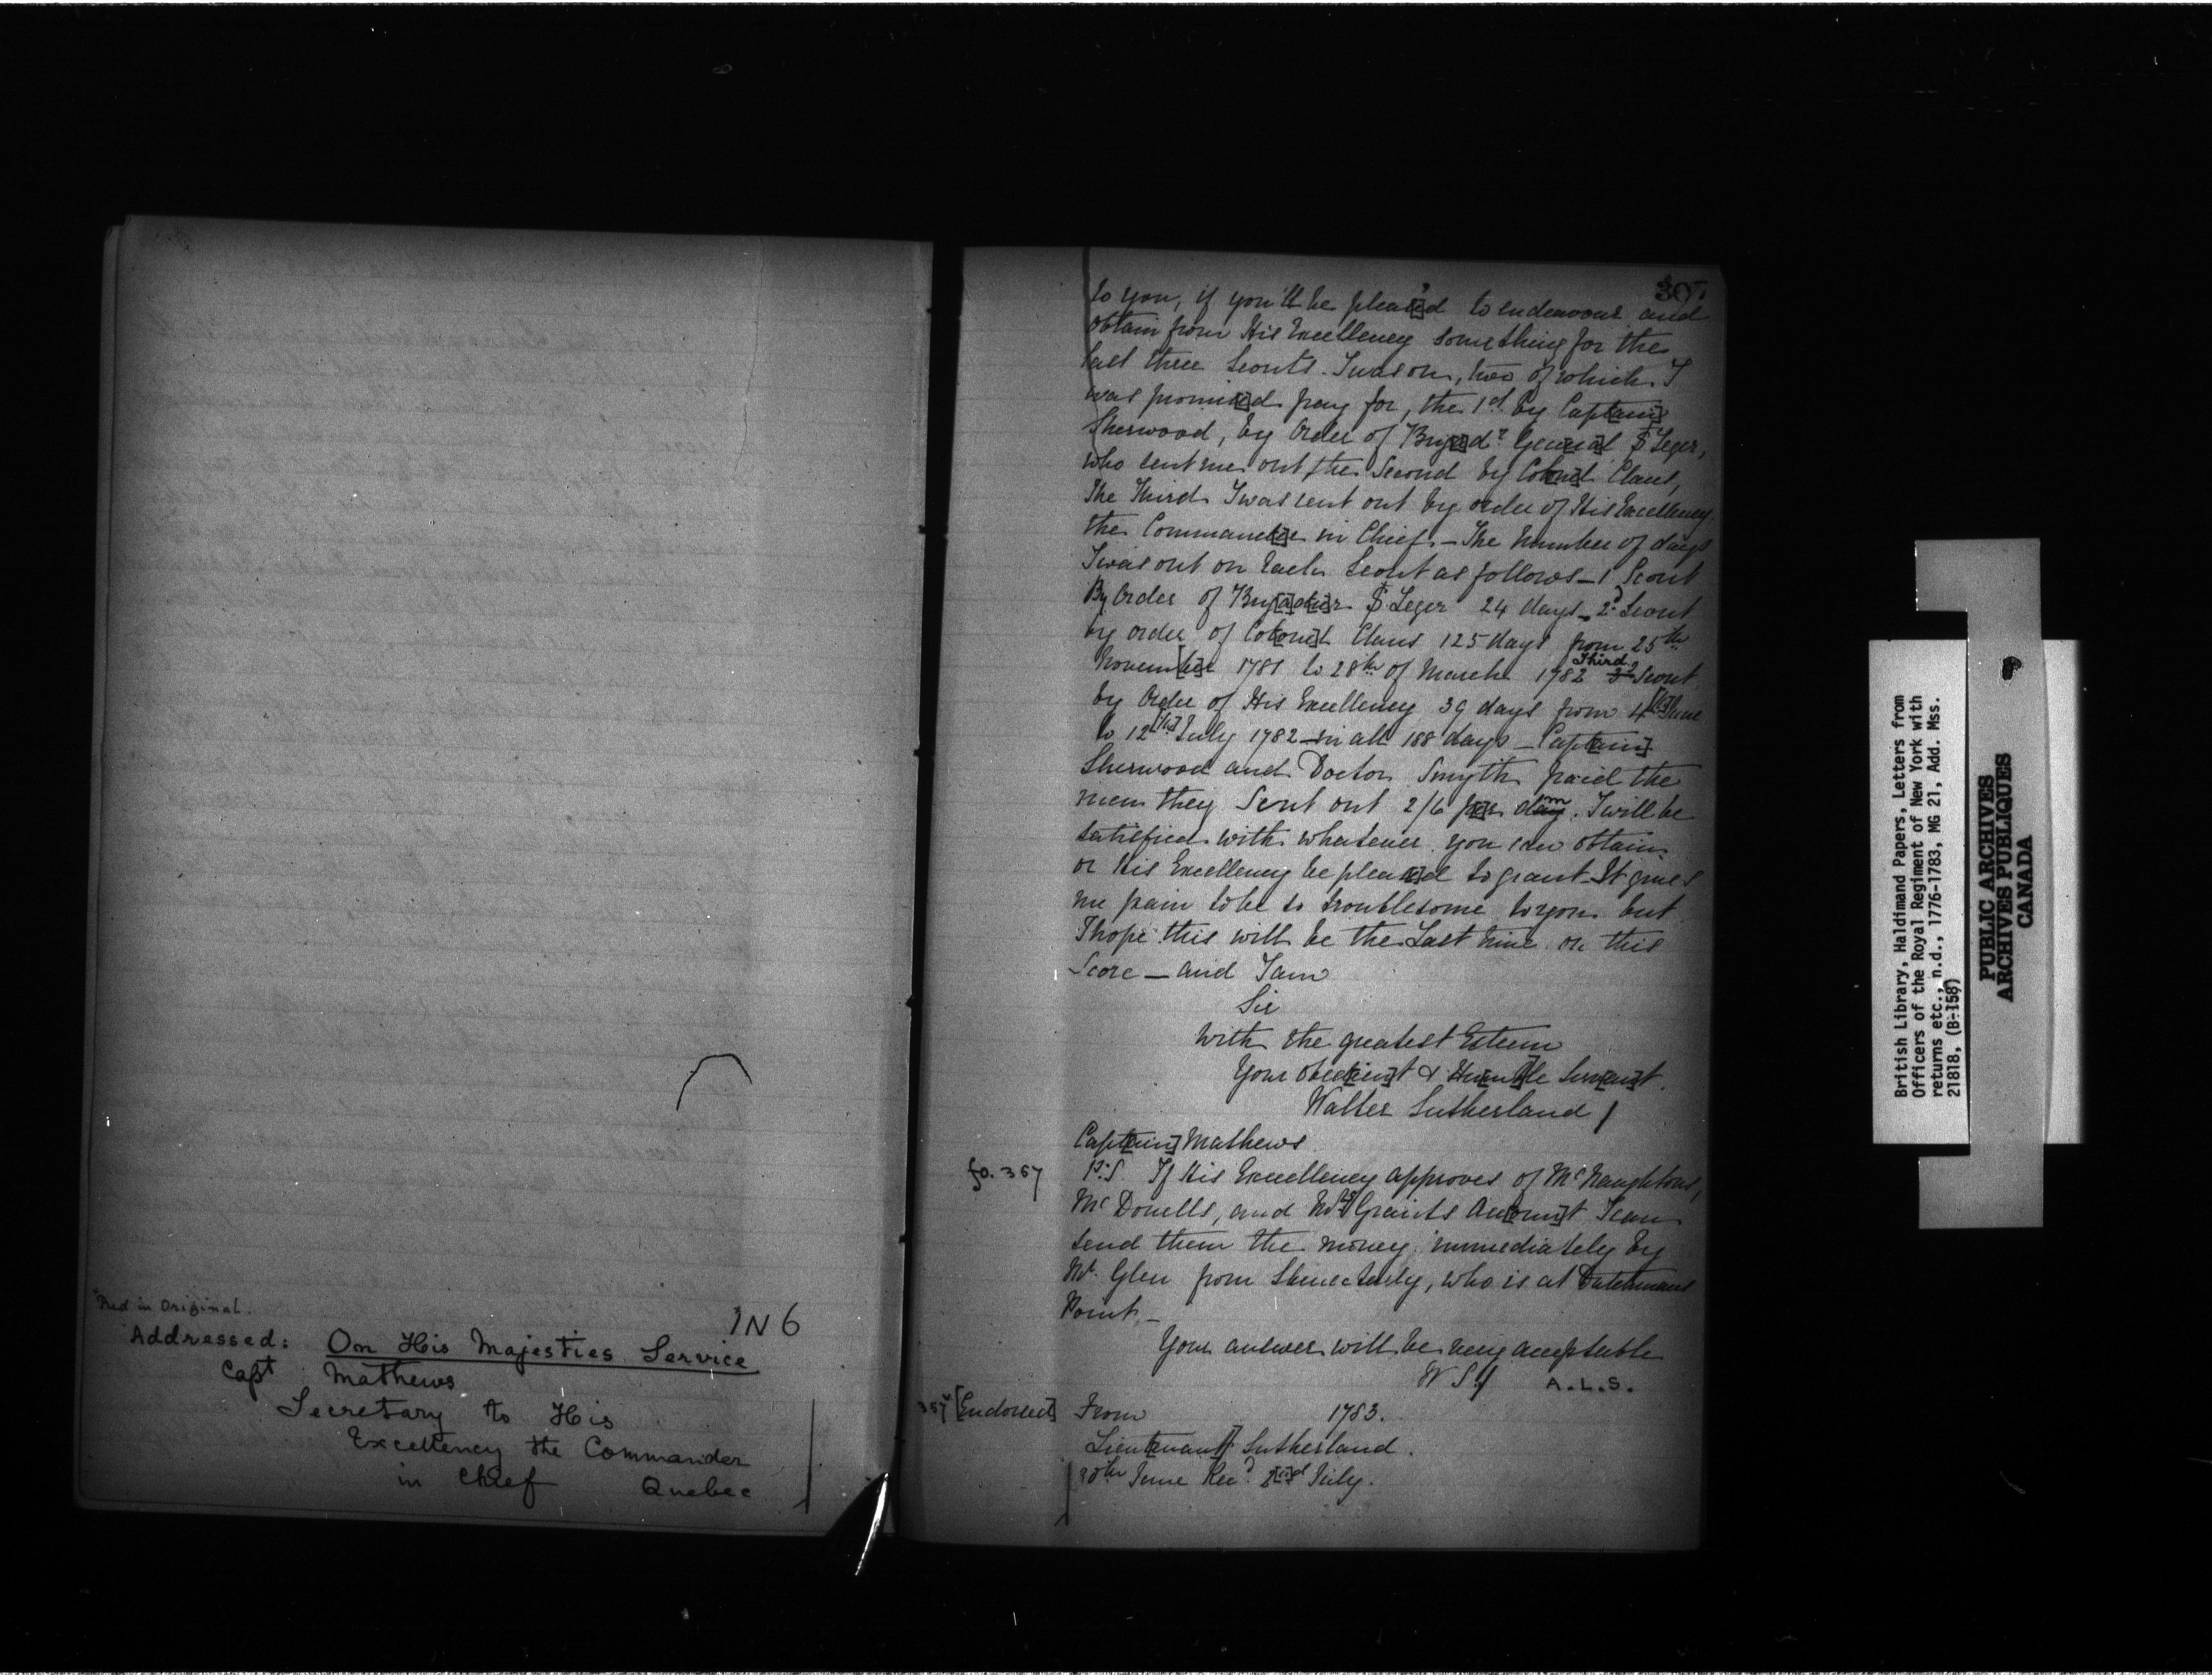 "Red in Original.
IN 6
Addressed: On His Majesties Service
Capt Mathews
Secretary to His
Excellency the Commander
in Chief Quebec
307
to you, if you'll be pleas[e]d to endeavour and
obtain from His Excellency something for the
last three Scouts I was on, two of which I
was promis[e]d pay for, the 1st by Capt[ain]
Sherwood, by Order of Brigad.r Gen[era]l St Leger,
who sent me out, the Second by Col[one]l Claus,
The Third I was sent out by order of His Excellency
the Command[e]r in Chief. – The number of days
I was out on Each Scout as follows – 1 Scout
By Order of Brig[adie]r St Leger 24 days – 2d Scout
by order of Col[one]l Claus 125 days from 25th
Novem[be]r 1781 to 28th of March 1782 Third Scout
by Order of His Excellency 39 days from 4[th] June
to 12[th] July 1782 – in all 188 days – Capt[ain]
Sherwood and Doctor Smyth paid the
men they Sent out 2/6 p[e]r diem. I will be
satisfied with whatever you can obtain
or His Excellency be pleas[e]d to grant – It gives
me pain to be so troublesome to you but
I hope this will be the Last time on this
Score – and I am
Sir
With the greatest Esteem
Your Obed[ien]t & Hum[b]le Serv[an]t
Walter Sutherland /
Capt[ain] Mathews
fo. 357
P.S. If His Excellency approves of McNaughtons,
McDonells, and Grants Acc[oun]t I can
send them the money immediately by
Mr. Glen from Shenectedy, who is at Dutchmans
Point, –
Your answer will be very acceptable
W S./ A.L.S.
357v [Endorsed] From 1783.
Lieut[enant] Sutherland.
30th June Rec.d 2[n]d July.
British Library, Haldimand Papers, Letters from
Officers of the Royal Regiment of New York with
returns etc., n.d., 1776-1783, MG 21, Add. Mss.
21818, (B-158)
PUBLIC ARCHIVES
ARCHIVES PUBLIQUES
CANADA